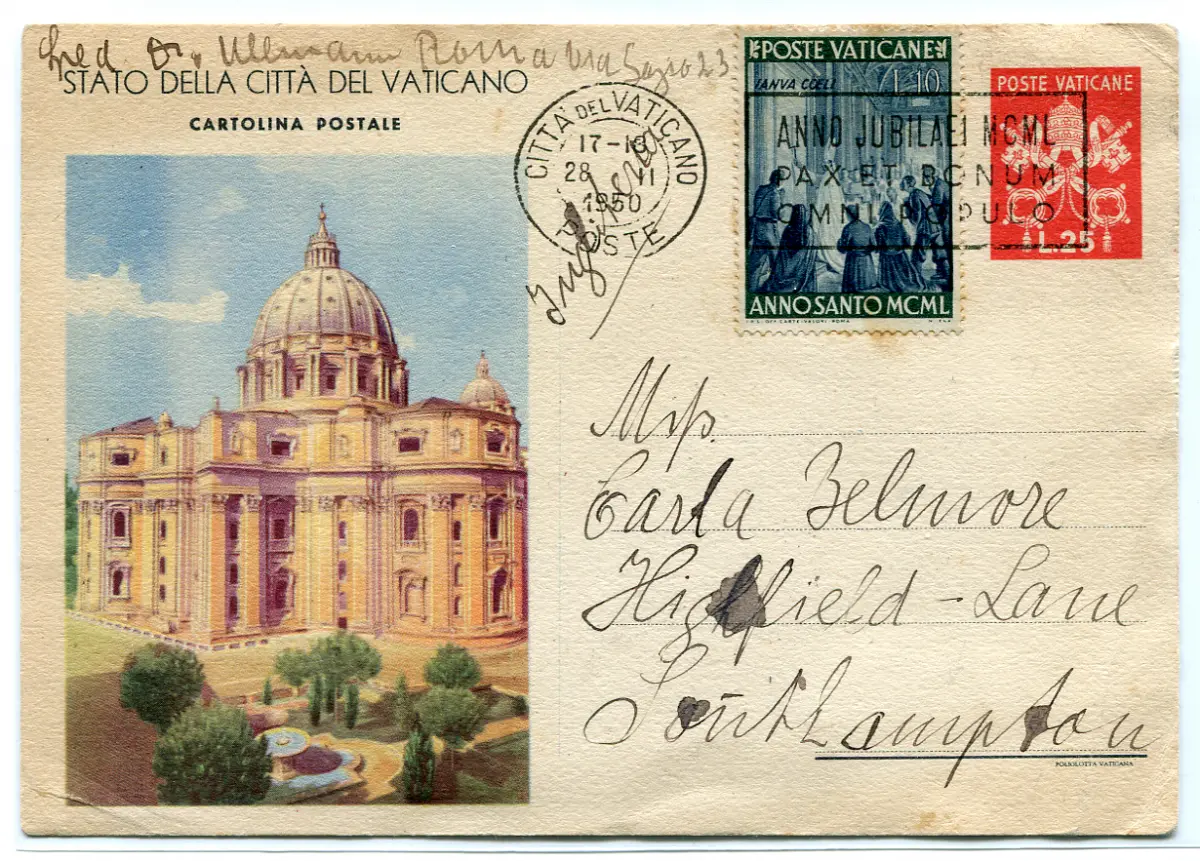 Sped. Dr. Ullmann Roma Via Lazio 23
STATO DELLA CITTÀ DEL VATICANO
CARTOLINA POSTALE
CITTÀ DEL VATICANO
17-18
28 II
1950
POSTE
Inghilterra
POSTE VATICANE
IANVA COELI
L. 10
ANNO SANTO MCML
ANNO JUBILAEI MCML
PAX ET BONUM
OMNI POPULO
POSTE VATICANE
L.25
Miss.
Carla Belmore
Highfield-Lane
Southampton
POLIGLOTTA VATICANA